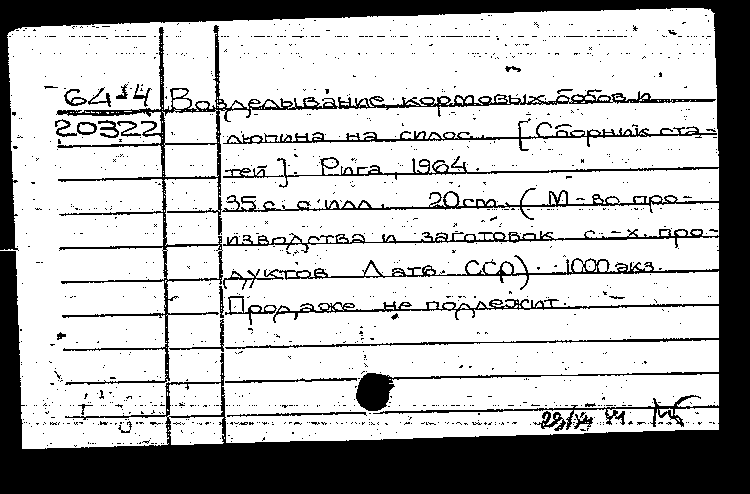 64-4 Возделывание кормовых бобов и
20322 люпина на силос. [Сборник ста-
тей]. Рига, 1964.
35 с. с илл. 20 cm. (М-во про-
изводства и заготовок с.-х. про-
дуктов Латв. ССР). 1000 экз.
Продаже не подлежит.